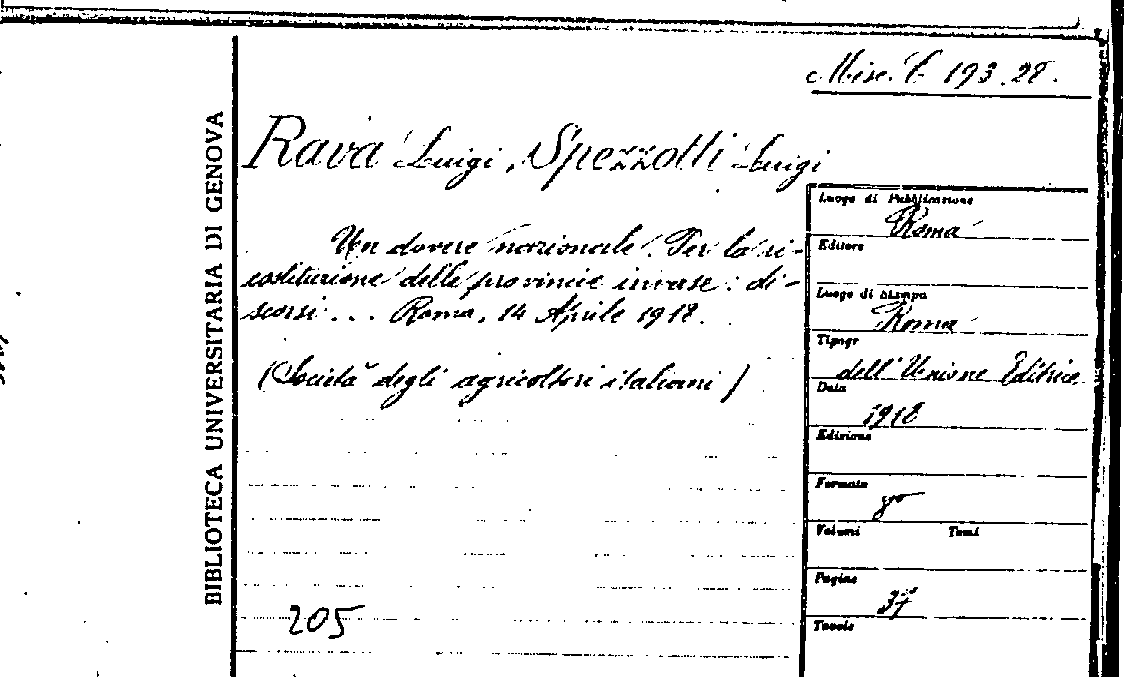 Misc. C 193. 28.
BIBLIOTECA UNIVERSITARIA DI GENOVA
Rava Luigi, Spezzotti Luigi
Un dovere nazionale. Per la ri-
costituzione delle provincie invase: di-
scorsi... Roma, 14 Aprile 1918.
(Società degli agricoltori italiani)
205
Luogo di Pubblicazione
Roma
Editore
Luogo di Stampa
Roma
Tipogr
dell'Unione Editrice
Data
1918
Edizione
Formato
8º
Volumi Tomi
Pagine
37
Tavole